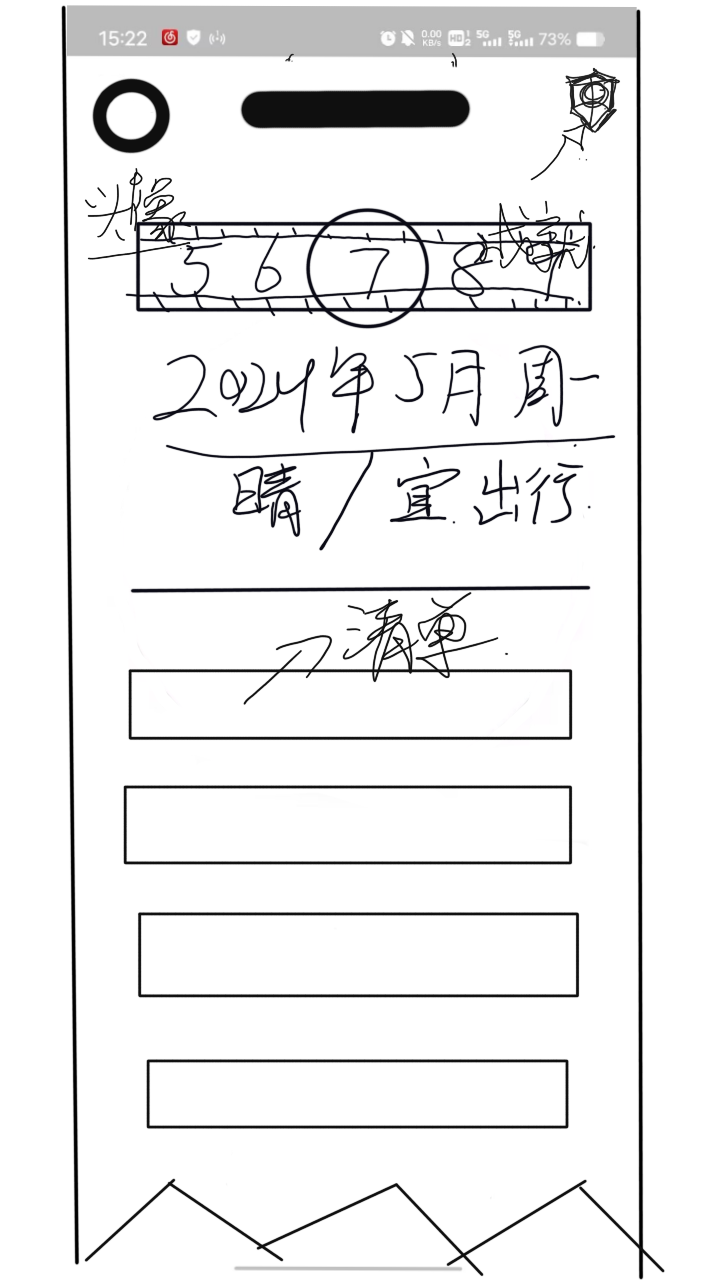 15:22 0.00 KB/s HD 1 2 5G 5G 73%
头像
成就
5 6 7 8 9
2024年5月 周一
晴/宜出行
清单